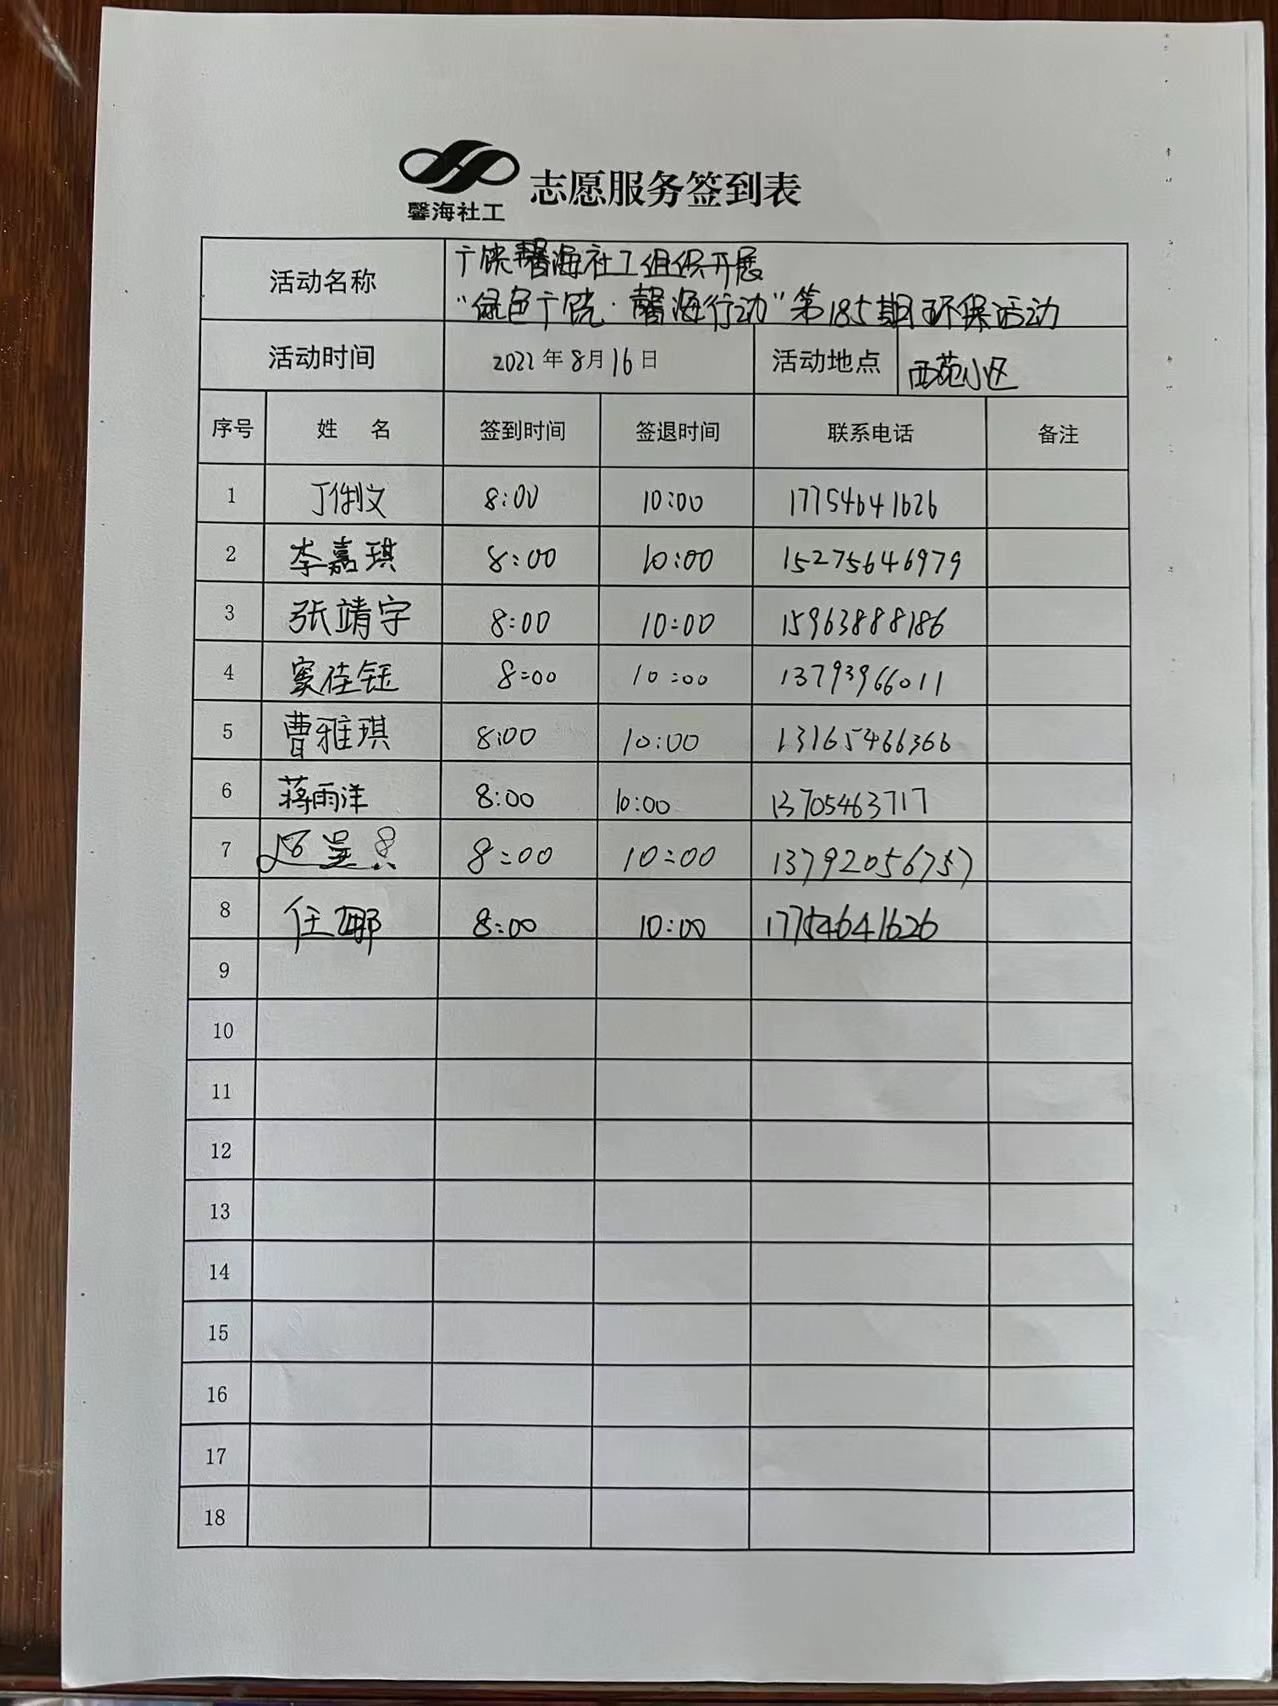 馨海社工
志愿服务签到表
活动名称
广饶馨海社工组织开展
“绿色广饶·馨海行动”第185期环保活动
活动时间 2022年8月16日 活动地点 西苑小区
序号 姓 名 签到时间 签退时间 联系电话 备注
1 丁俐文 8:00 10:00 17754641626
2 李嘉琪 8:00 10:00 15275646979
3 张靖宇 8:00 10:00 15963888186
4 窦佳钰 8:00 10:00 13793966011
5 曹雅琪 8:00 10:00 13165466366
6 蒋雨洋 8:00 10:00 13705463717
7 8:00 10:00 13792056757
8 任娜 8:00 10:00 17754641626
9
10
11
12
13
14
15
16
17
18